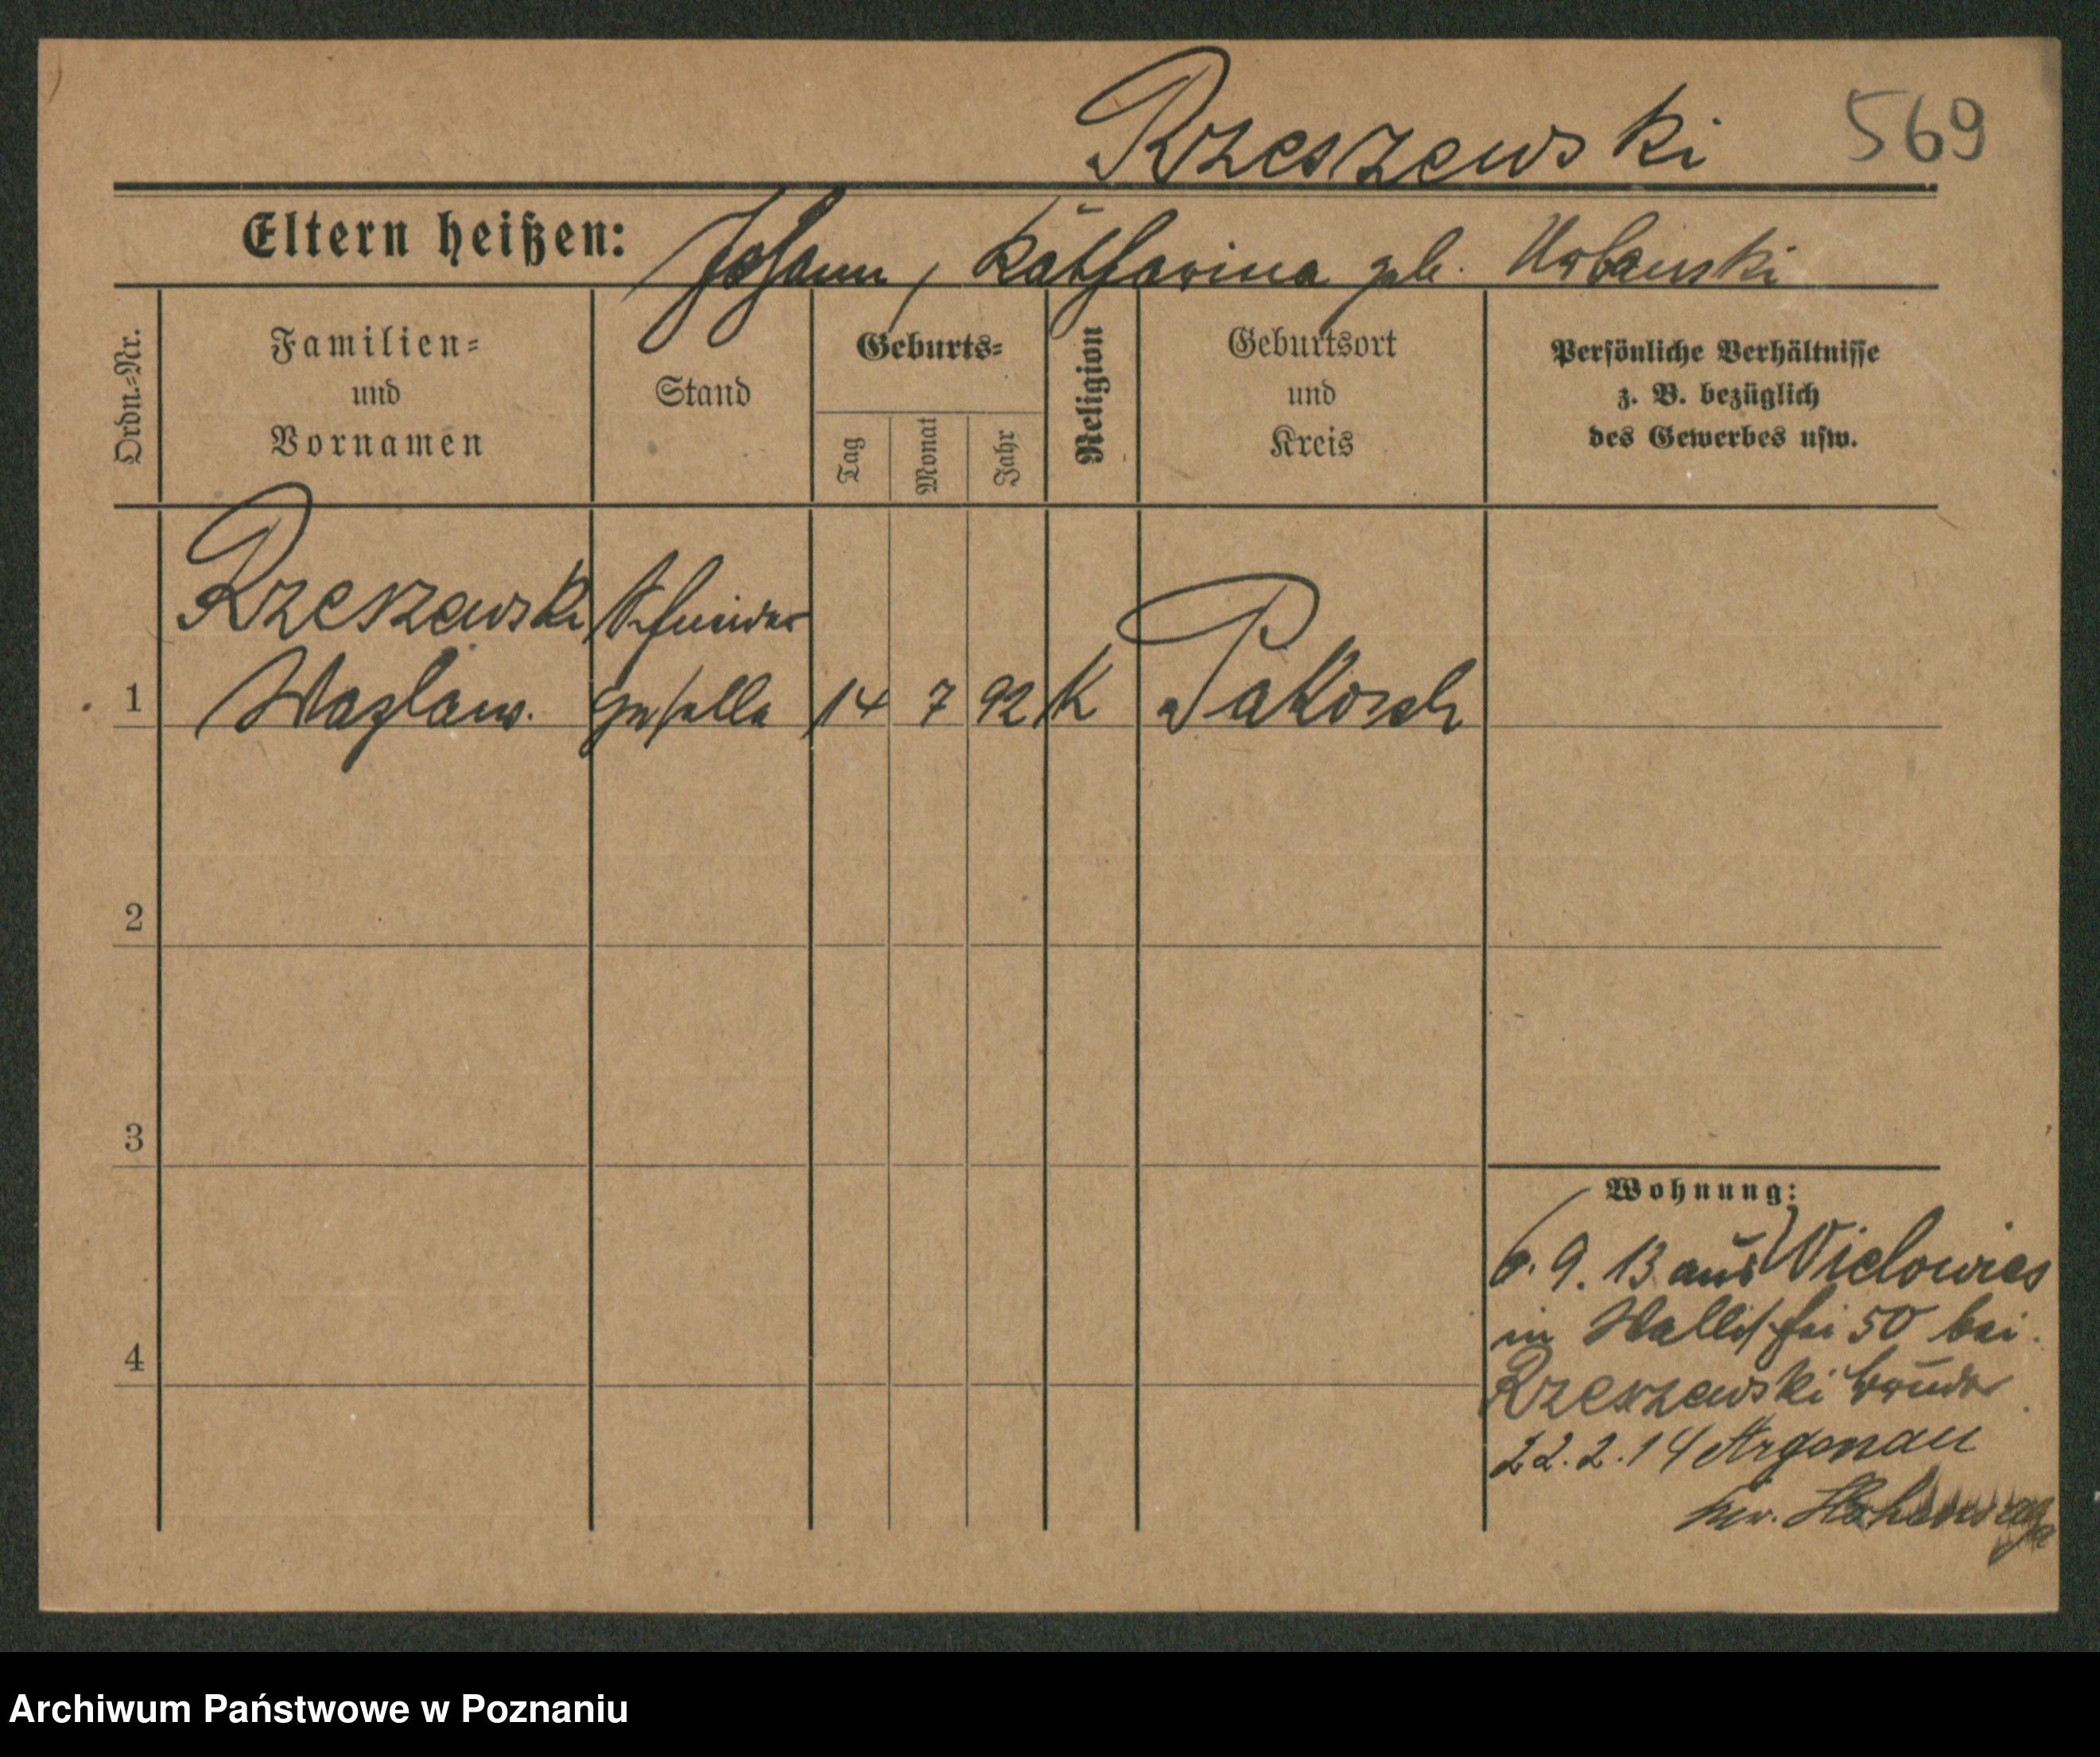 Rzeszewski 569
Eltern heißen: Johann, Katharina geb. Urbanski
Ordn.-Nr.
Familien-
und
Vornamen
Stand
Geburts-
Tag
Monat
Jahr
Religion
Geburtsort
und
Kreis
Persönliche Verhältnisse
z. B. bezüglich
des Gewerbes usw.
Rzeszewski Schneider
1 Wazlaw. geselle 14 7 92 K Pakosch
2
3
Wohnung:
6. 9. 13 aus Wielowies
in 50 bei
4
Rzeszewski Bruder
22. 2. 14 Argenau
Kr. Hohensalza
Archiwum Państwowe w Poznaniu